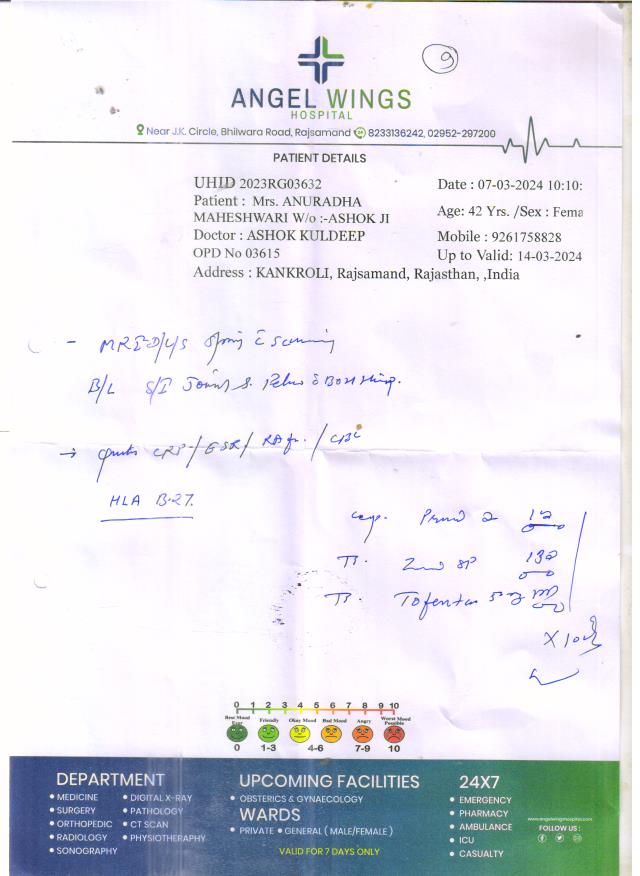 9
ANGEL WINGS
HOSPITAL
Near J.K. Circle, Bhilwara Road, Rajsamand 8233136242, 02952-297200
PATIENT DETAILS
UHID 2023RG03632 Date : 07-03-2024 10:10:
Patient : Mrs. ANURADHA
MAHESHWARI W/o :-ASHOK JI Age: 42 Yrs. /Sex : Fema
Doctor : ASHOK KULDEEP Mobile : 9261758828
OPD No 03615 Up to Valid: 14-03-2024
Address : KANKROLI, Rajsamand, Rajasthan, ,India
- MRI-D/L/S
B/L S/I Joints
→ CRP/ESR/RA /CBC
HLA B-27
cap.
T.
T. 50
X 10
0 1 2 3 4 5 6 7 8 9 10
Best Mood Ever Friendly Okay Mood Bad Mood Angry Worst Mood Possible
0 1-3 4-6 7-9 10
DEPARTMENT
MEDICINE
SURGERY
ORTHOPEDIC
RADIOLOGY
SONOGRAPHY
DIGITAL X-RAY
PATHOLOGY
CT SCAN
PHYSIOTHERAPHY
UPCOMING FACILITIES
OBSTERICS & GYNAECOLOGY
WARDS
PRIVATE GENERAL ( MALE/FEMALE )
VALID FOR 7 DAYS ONLY
24X7
EMERGENCY
PHARMACY
AMBULANCE
ICU
CASUALTY
www.angelwingshospital.com
FOLLOW US :